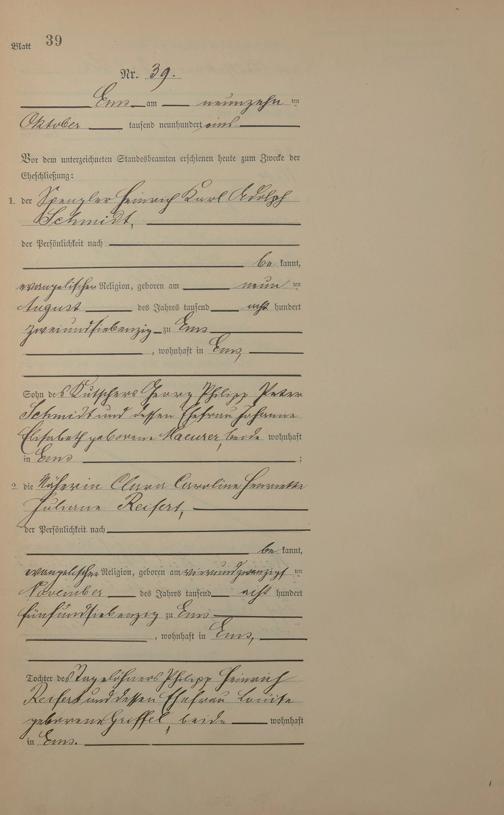 Blatt 39
Nr. 39.
Ems am neunzehn ten
Oktober tausend neunhundert eins
Vor dem unterzeichneten Standesbeamten erschienen heute zum Zwecke der
Eheschließung:
1. der Spengler Heinrich Karl Adolph
Schmidt,
der Persönlichkeit nach
be kannt,
evangelischer Religion, geboren am neun ten
August des Jahres tausend acht hundert
zweiundsiebenzig zu Ems
, wohnhaft in Ems,
Sohn des Kutschers Georg Philipp Peter
Schmidt und dessen Ehefrau Johanne
Elisabeth geborene Maeurer, beide wohnhaft
in Ems ;
2. die Näherin Clara Caroline Henriette
Juliane Reifert,
der Persönlichkeit nach
be kannt,
evangelischer Religion, geboren am vierundzwanzigs ten
November des Jahres tausend acht hundert
fünfundsiebenzig zu Ems
, wohnhaft in Ems,
Tochter des Tagelöhners Philipp Heinrich
Reifert und dessen Ehefrau Louise
geborene Greiffel, beide wohnhaft
in Ems.